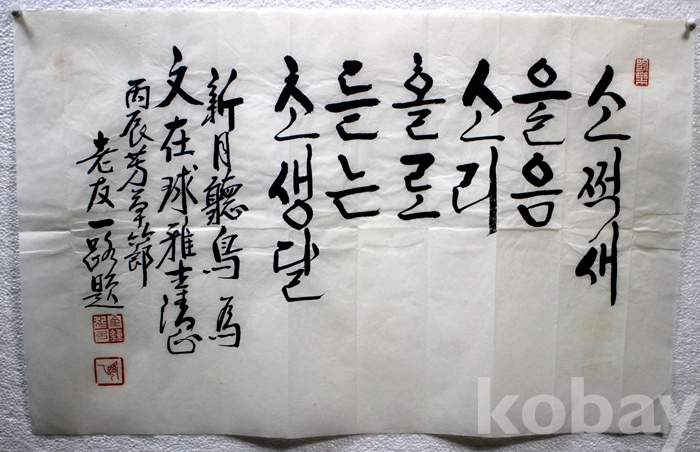 소쩍새
울음
소리
홀로
듣는
초생달
新月聽鳥 爲
文在球雅士淸正
丙辰芳草節
老友一路題
kobay